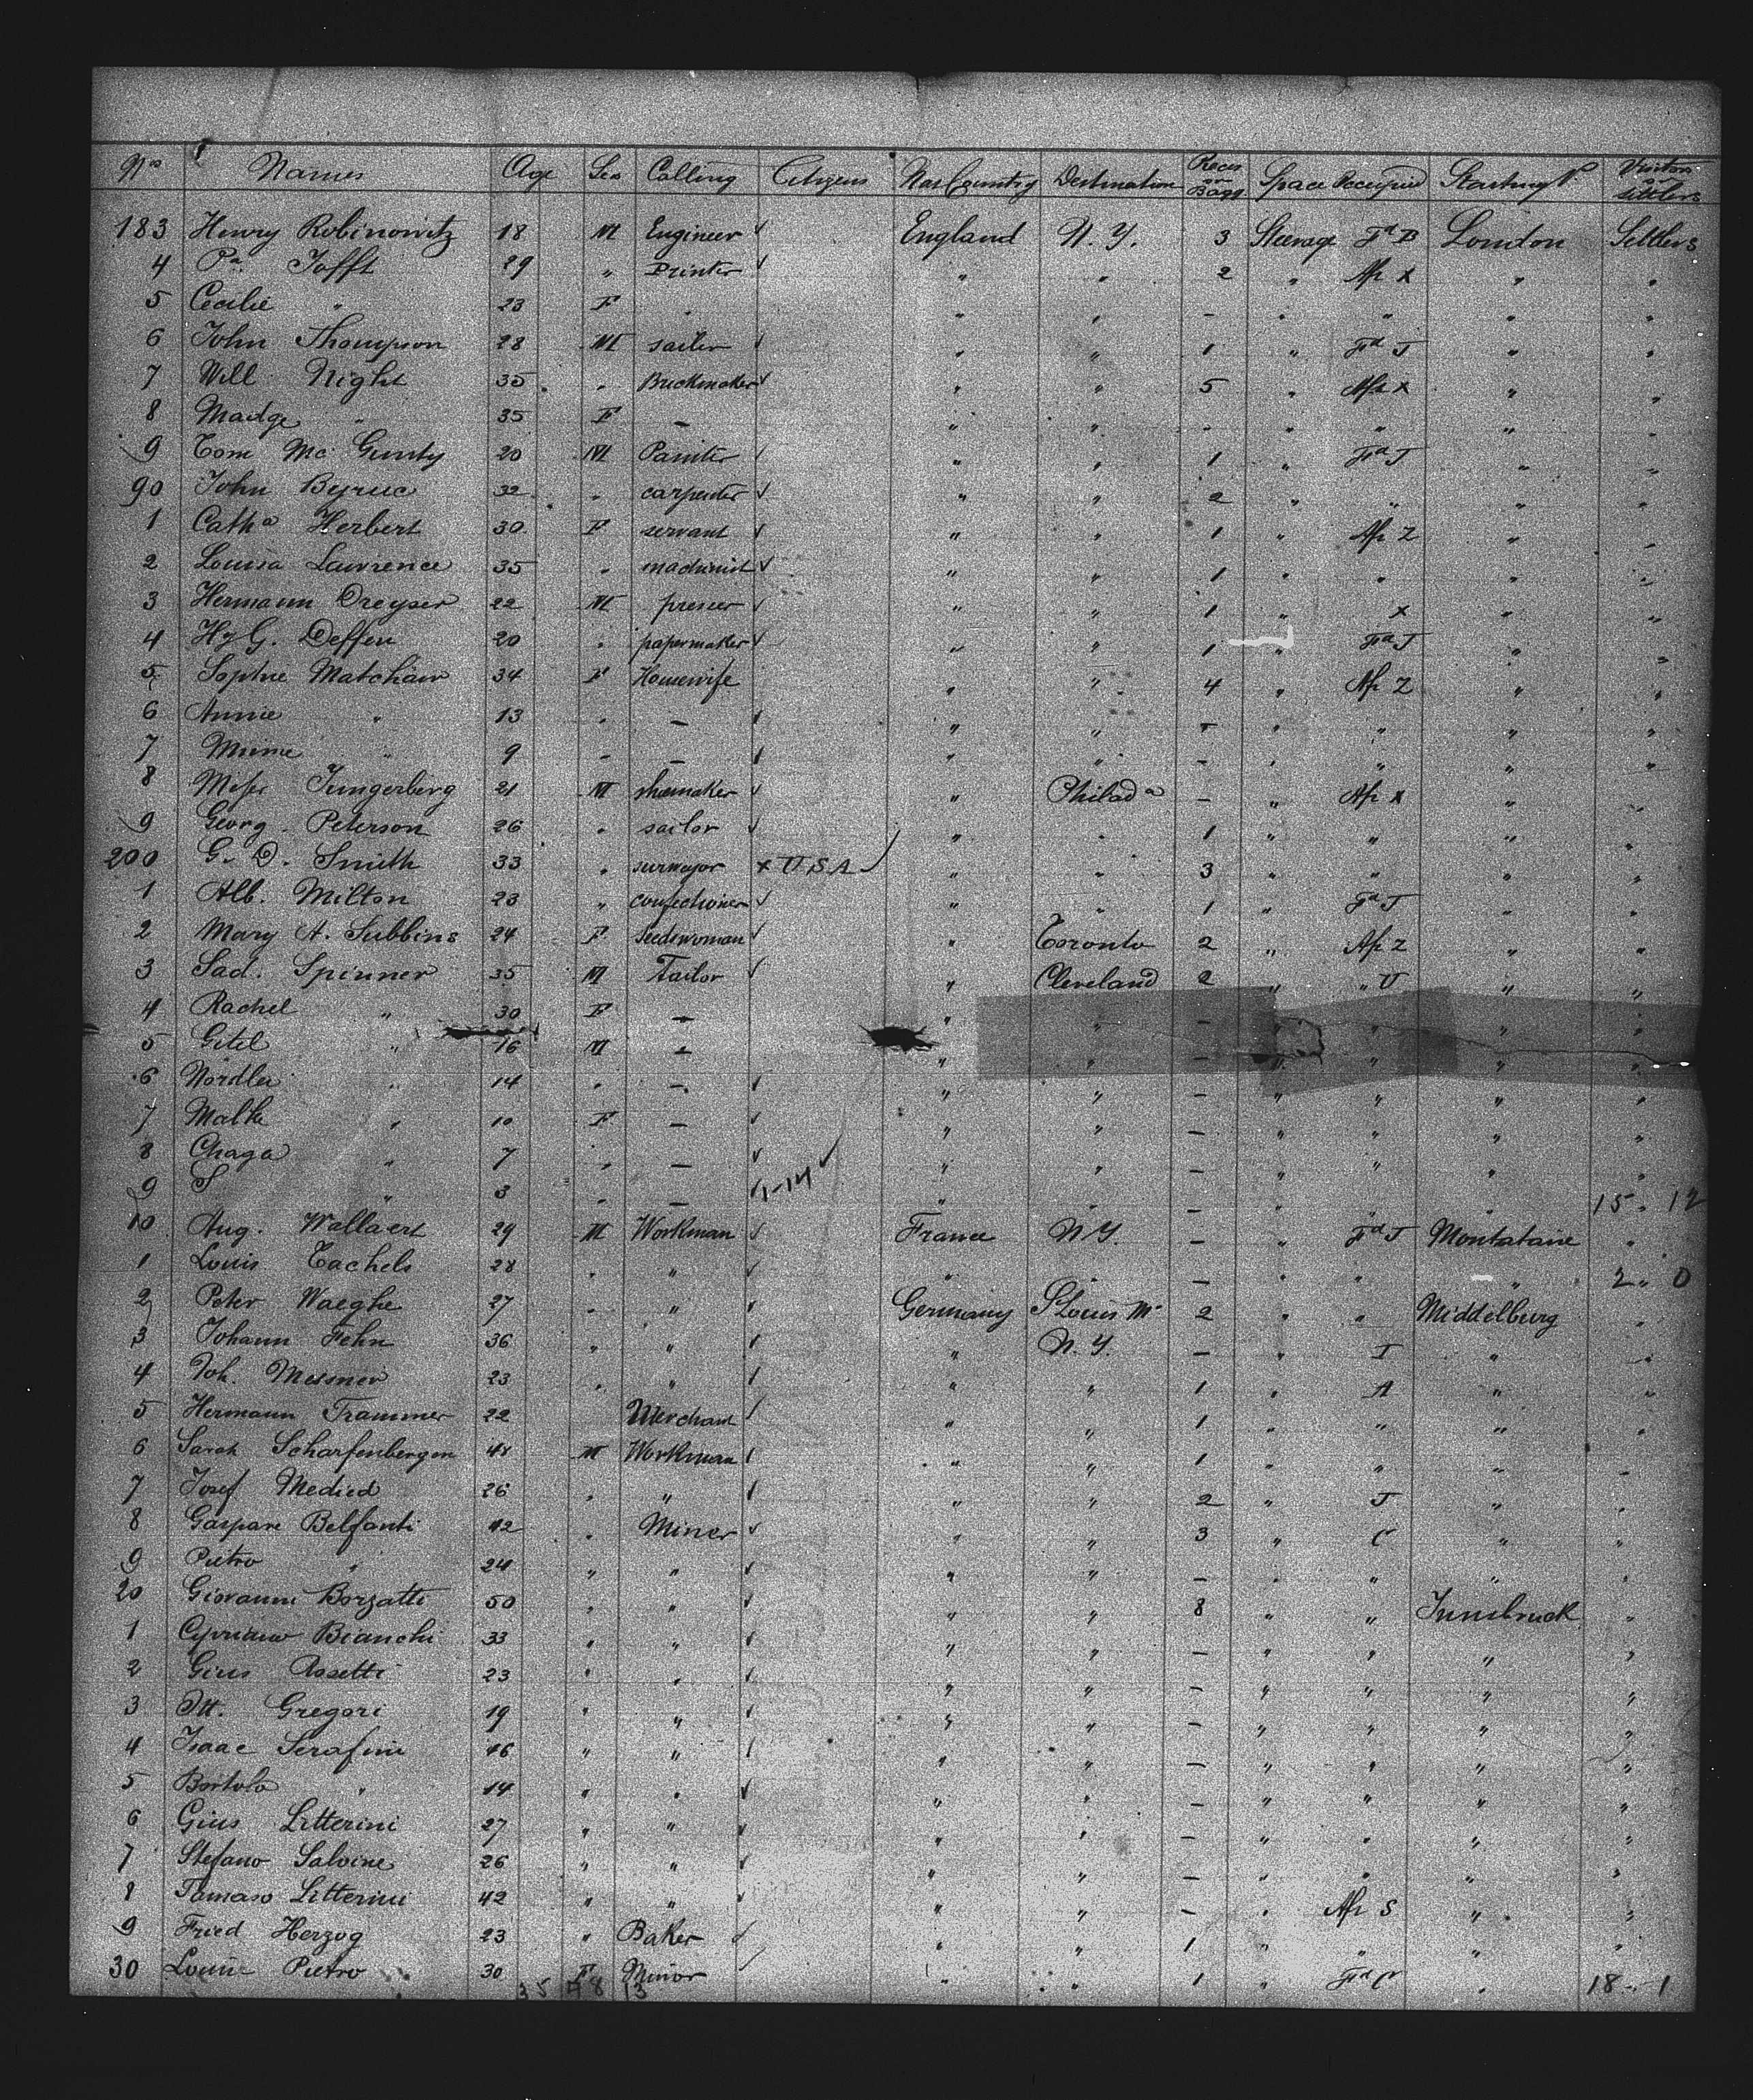 Nos Names Age Sex Calling Citizens Nat Country Destination Pieces Bagg Space Occupied Starting P. Visitors or settlers
183 Henry Robinowitz 18 M Engineer ✓ England N.Y. 3 Steerage Fd B London Settlers
4 Pr. Jofft 29 " Printer ✓ " " 2 " Af. X " "
5 Cecilie " 23 F " " " - " " " "
6 John Thompson 28 M sailor ✓ " " 1 " Fd J " "
7 Will Night 35 " Brickmaker ✓ " " 5 " Af. X " "
8 Madge " 35 F - " " - " " " "
9 Tom Mc Gunty 20 M Painter ✓ " " 1 " Fd J " "
90 John Byrue 32 " carpenter ✓ " " 2 " " " "
1 Catha Herbert 30 F servant ✓ " " 1 " Af. Z " "
2 Louisa Lawrence 35 " machinist ✓ " " 1 " " " "
3 Hermann Dreyser 22 M presser ✓ " " 1 " X " "
4 Hy G. Deffen 20 " papermaker ✓ " " 1 " Fd J " "
5 Sophie Matchaw 34 F Housewife " " 4 " Af. Z " "
6 Annie " 13 " - ✓ " " - " " " "
7 Minnie " 9 - - ✓ " " - " " " "
8 Jungerberg 21 M shoemaker ✓ " Philada - " Af. X " "
9 Georg Peterson 26 " sailor ✓ " " 1 " " " "
200 G. D. Smith 33 " surveyor x U.S.A ✓ " " 3 " " " "
1 Alb. Milton 23 " confectioner ✓ " " 1 " Fd J " "
2 Mary A. Subbins 24 F Seedswoman ✓ " Toronto 2 " Af. Z " "
3 Sad. Spinner 35 M Tailor ✓ " Cleveland 2 " " U " "
4 Rachel " 30 F - " " - " " " "
5 Gitel " 16 M - " " - " " " "
6 Nordler " 14 " - ✓ " " - " " " "
7 Malke " 10 F - ✓ " " - " " " "
8 Chaga " 7 " - ✓ " " - " " " "
9 S " 3 " - ✓ 1-14 ✓ " " - " " " 15 " 12
10 Aug. Wallaert 29 M Workman ✓ France N.Y. - " Fd J Montataire "
1 Louis Tachels 28 " " ✓ " " - " " " 2 " 0
2 Peter Waeghe 27 - " ✓ Germany St Louis Mo 2 " " Middelburg "
3 Johann Fehn 36 " " ✓ " N.Y. - " J " "
4 Joh. Mesmer 23 " " ✓ " " 1 " A " "
5 Hermann Trammer 22 Merchant ✓ " " 1 " " " "
6 Sarah Scharfenbergen 48 M Workman ✓ " " 1 " " " "
7 Josef Medied 26 " " ✓ " " 2 " J " "
8 Gaspare Belfanti 42 " Miner ✓ " " 3 " C " "
9 Pietro " 24 " " ✓ " " - " " " "
20 Giovanni Borzatti 50 " " ✓ " " 8 " " Innsbruck "
1 Cypriano Bianchi 33 " " ✓ " " - " " " "
2 Gius Rosetti 23 " " ✓ " " - " " " "
3 Ott. Gregori 19 " " ✓ " " - " " " "
4 Isaac Serafini 46 " " ✓ " " - " " " "
5 Bortolo " 14 " " ✓ " " - " " " "
6 Gius Litterini 27 " " ✓ " " - " " " "
7 Stefano Salvine 26 " " ✓ " " - " " " "
8 Tomaso Litterini 42 " " ✓ " " - " Af. S " "
9 Fried Herzog 23 " Baker ✓ " " 1 " " " "
30 Louis Pietro 30 F Minor ✓ " " 1 " Fd C " 18 - 1
35 48 13